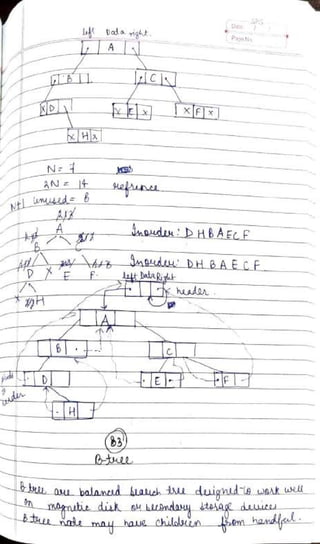 Date
Page No.
left Data right
A
B
C
X D
X E X
X F X
X H X
N = 7
2N = 14 refrence
N+1 unused = 8
A
B C
D X E F
X H
Inorder: D H B A E C F
Inorder: D H B A E C F
left Data Right
header
A
B
C
D
E
F
header
H
B3
B-tree
B tree are balanced search tree designed to work well
on magnetic disk or secondary storage devices
B tree node may have children from handful.